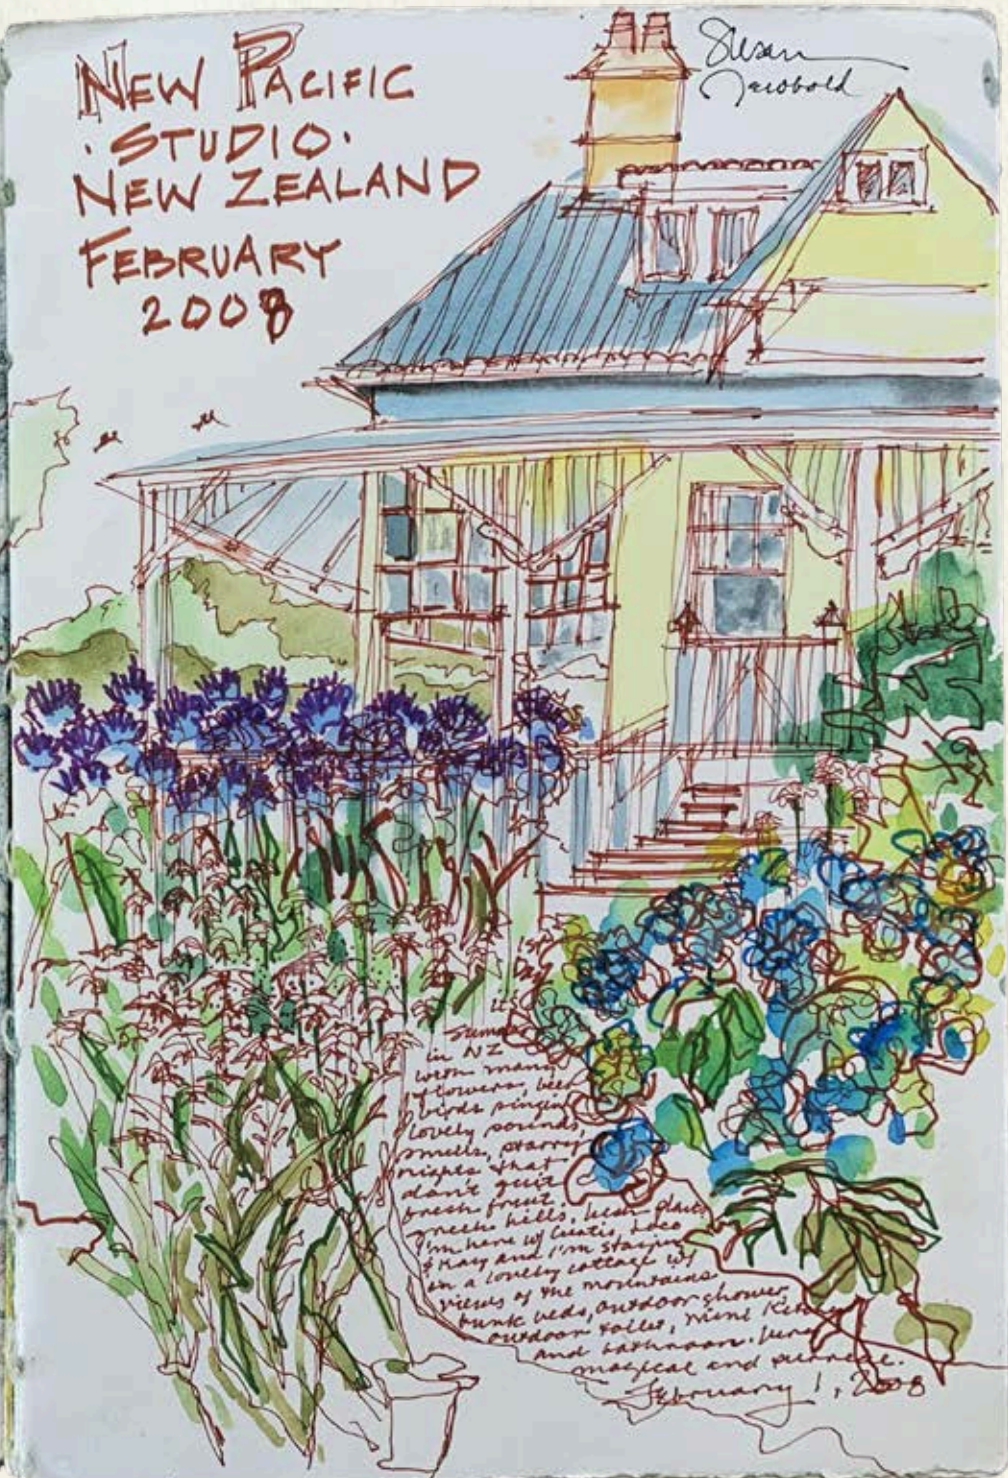 NEW PACIFIC
· STUDIO ·
NEW ZEALAND
FEBRUARY
2008
Susan
1st
Day
in NZ
with many
flowers, bees
birds singing
lovely sounds,
smells, starry
nights that
don't quit
fresh fruit.
green hills,
I'm here w/
& Kay and I'm staying
in a lovely cottage w/
views of the mountains
bunk beds, outdoor shower,
outdoor toilet, mini kitchen
and bathroom. Very
magical and surreal.
February 1, 2008